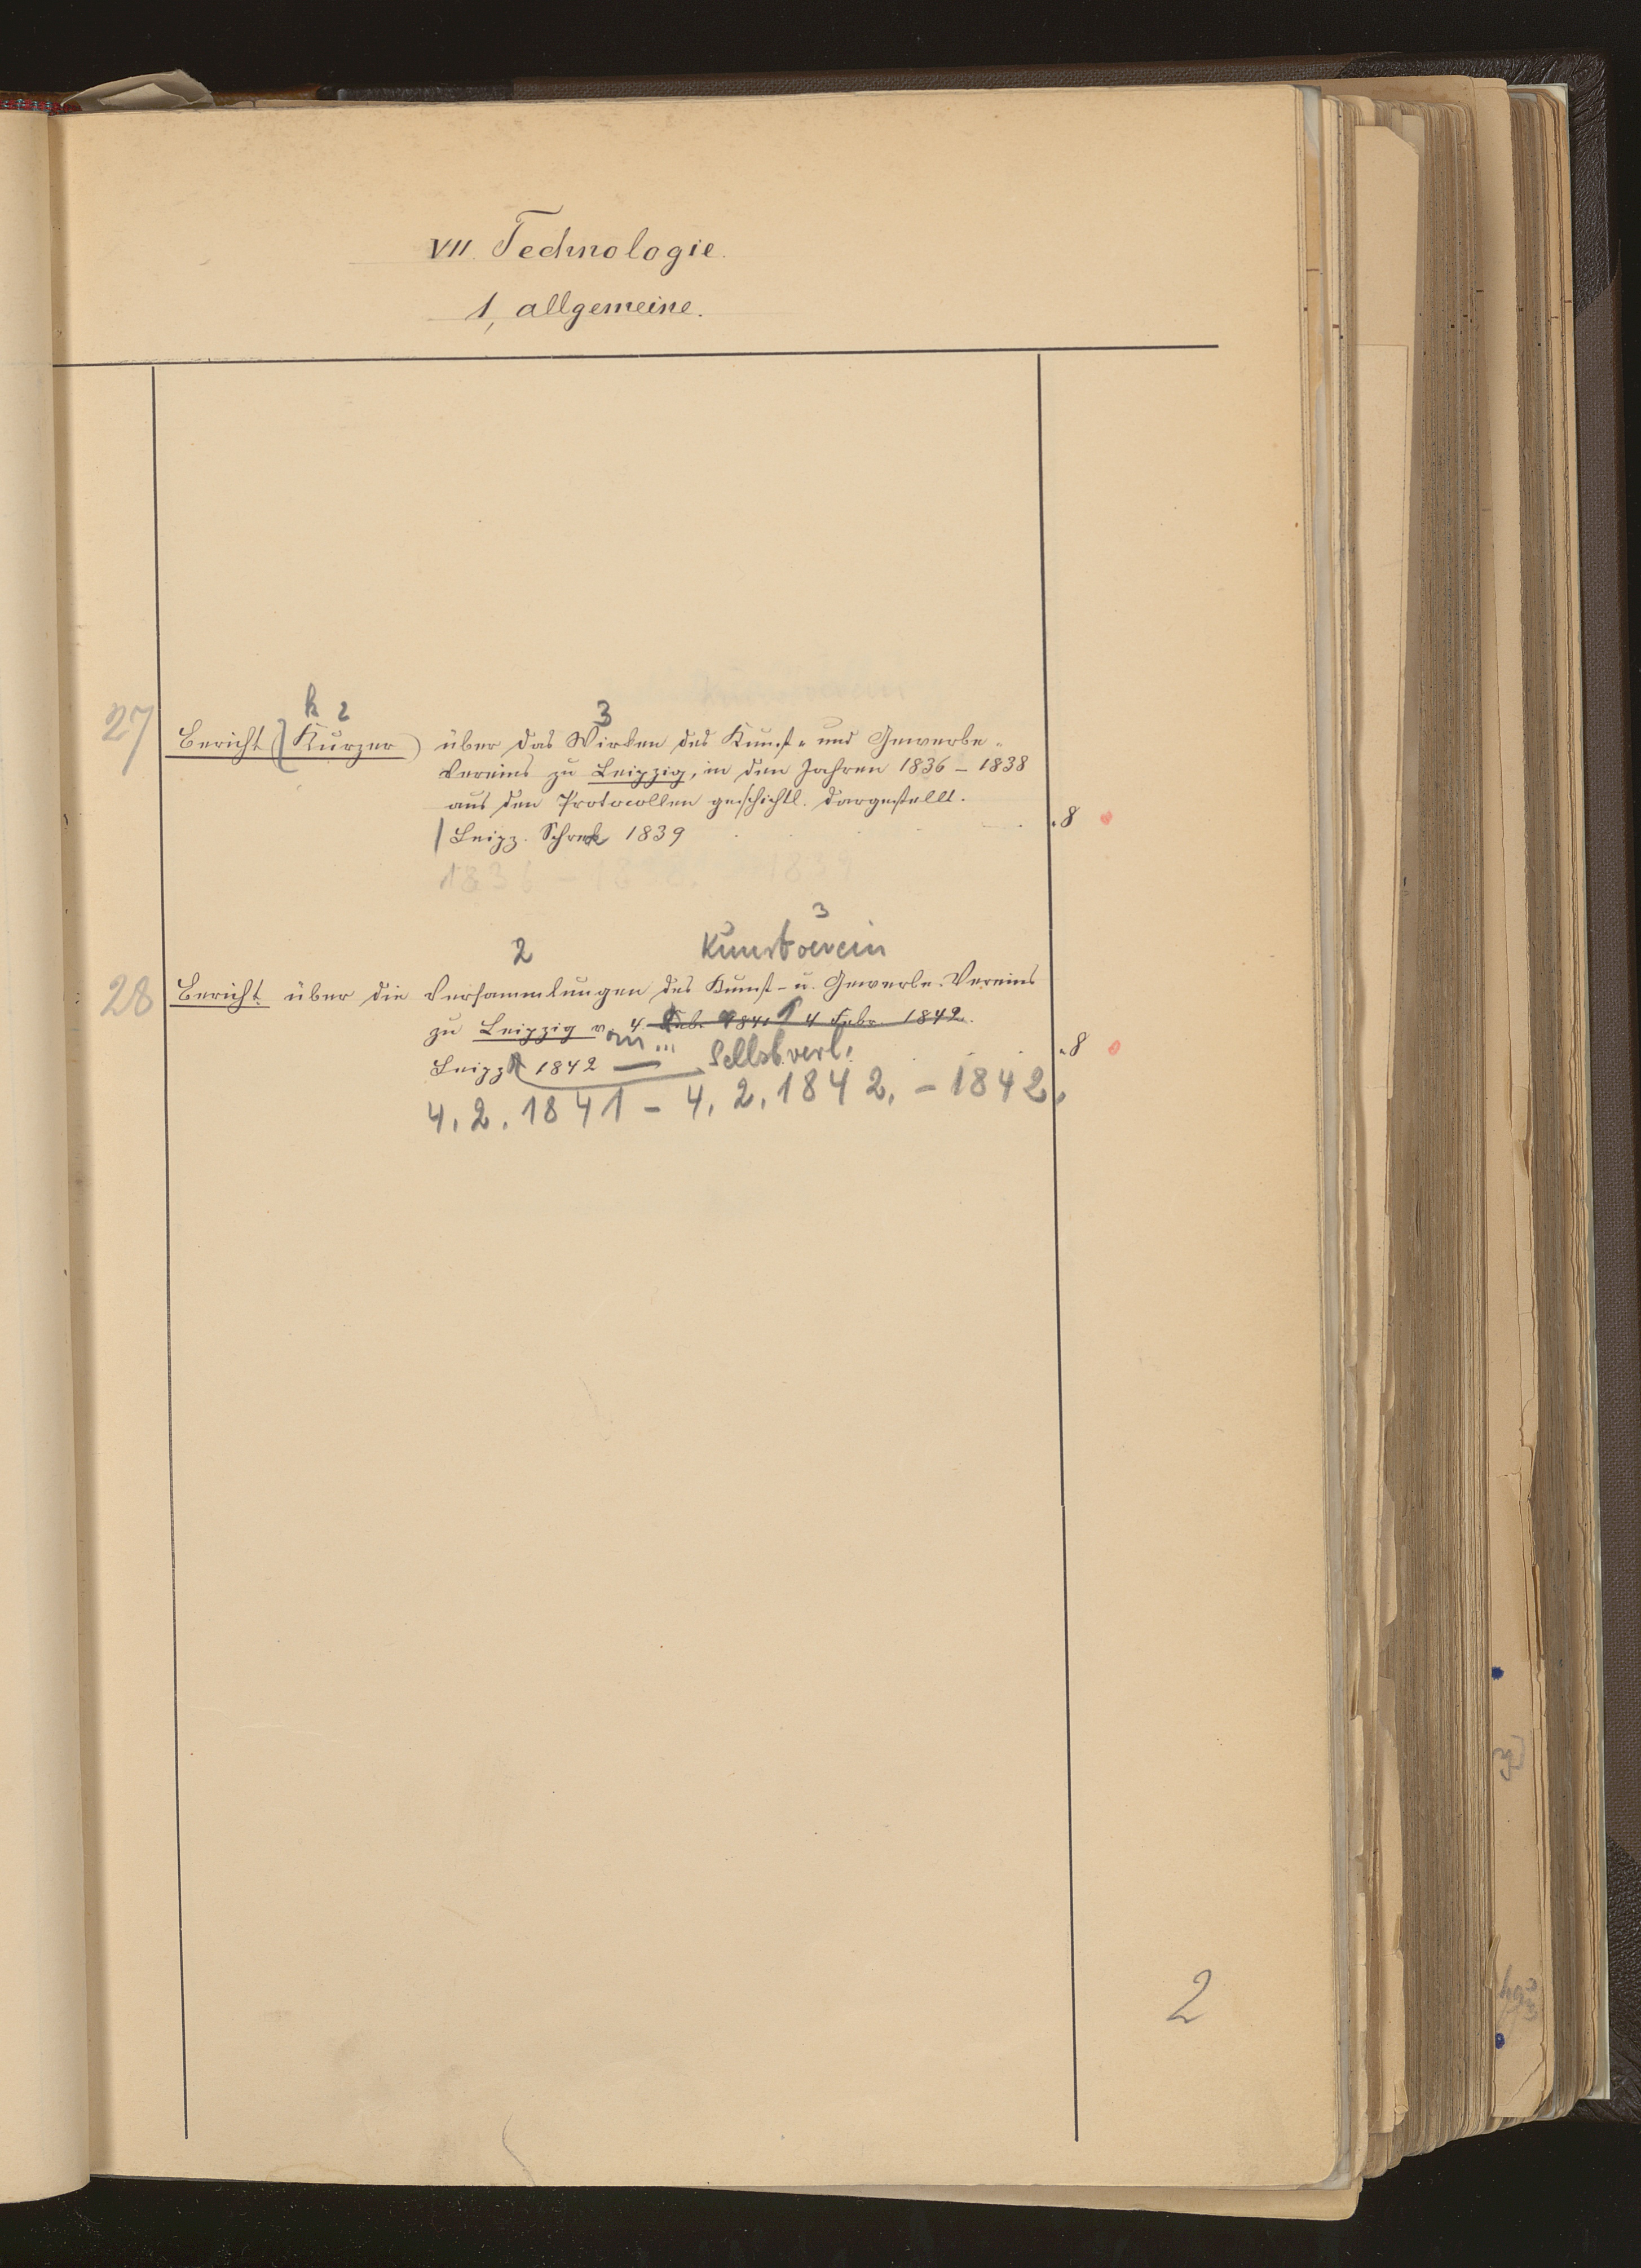 VII. Technologie.
1, allgemeine.
k 2 3
27 Bericht (Kurzer) über das Wirken des Kunst- und Gewerbe-
Vereins zu Leipzig, in den Jahren 1836 – 1838
aus den Protocollen geschichtl. dargestellt.
Leipz. Schreck 1839 . 8
1836 – 1838. – 1839
3
2 Kunstverein
28 Bericht über die Versammlungen des Kunst- u. Gewerbe-Vereins
zu Leipzig v. 4 Febr. 1841 4 Febr. 1842.
Leipz 1842 — Selbstverl. . 8
4. 2. 1841 – 4. 2. 1842. – 1842.
2